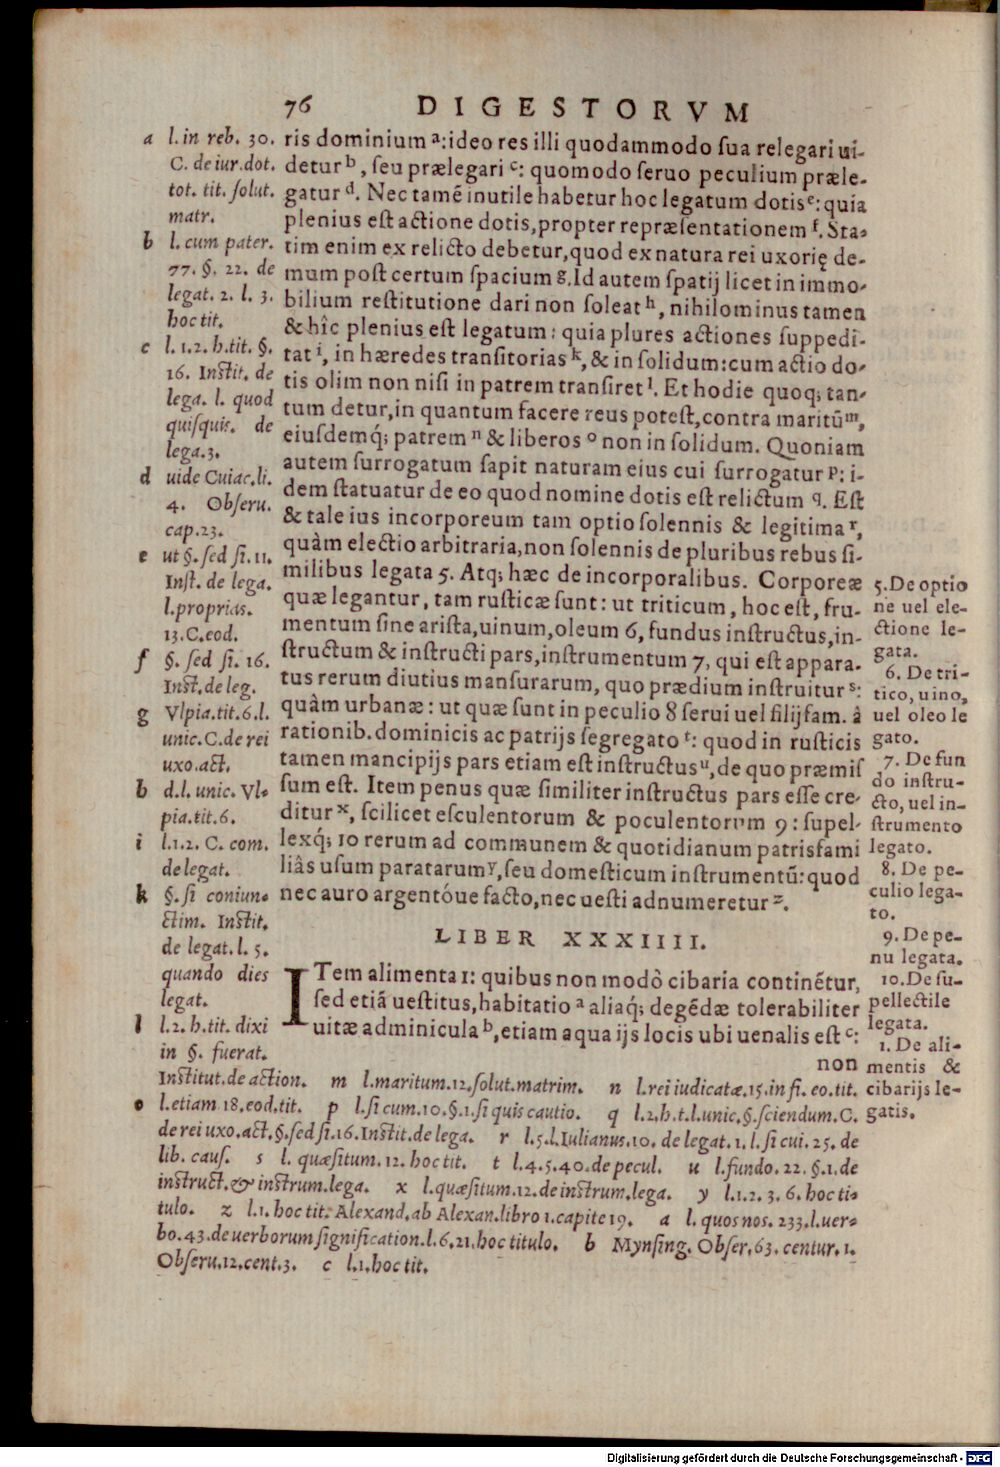 76 DIGESTORVM
ris dominium ᵃ: ideo res illi quodammodo sua relegari ui-
detur ᵇ, seu prælegari ᶜ: quomodo seruo peculium præle-
gatur ᵈ. Nec tamẽ inutile habetur hoc legatum dotis ᵉ: quia
plenius est actione dotis, propter repræsentationem ᶠ. Sta-
tim enim ex relicto debetur, quod ex natura rei uxorię de-
mum post certum spacium ᵍ. Id autem spatij licet in immo-
bilium restitutione dari non soleat ʰ, nihilominus tamen
& hîc plenius est legatum: quia plures actiones suppedi-
tat ⁱ, in hæredes transitorias ᵏ, & in solidum: cum actio do-
tis olim non nisi in patrem transiret ˡ. Et hodie quoq; tan-
tum detur, in quantum facere reus potest, contra maritũ ᵐ,
eiusdemq́; patrem ⁿ & liberos ᵒ non in solidum. Quoniam
autem surrogatum sapit naturam eius cui surrogatur ᵖ: i-
dem statuatur de eo quod nomine dotis est relictum q. Est
& tale ius incorporeum tam optio solennis & legitima ʳ,
quàm electio arbitraria, non solennis de pluribus rebus si-
milibus legata 5. Atq; hæc de incorporalibus. Corporeæ
quæ legantur, tam rusticæ sunt: ut triticum, hoc est, fru-
mentum sine arista, uinum, oleum 6, fundus instructus, in-
structum & instructi pars, instrumentum 7, qui est appara-
tus rerum diutius mansurarum, quo prædium instruitur ˢ:
quàm urbanæ: ut quæ sunt in peculio 8 serui uel filijfam. â
rationib. dominicis ac patrijs segregato ᵗ: quod in rusticis
tamen mancipijs pars etiam est instructus ᵘ, de quo præmis
sum est. Item penus quæ similiter instructus pars esse cre-
ditur ˣ, scilicet esculentorum & poculentorum 9: supel-
lexq́; 10 rerum ad communem & quotidianum patrisfami
liâs usum paratarum ʸ, seu domesticum instrumentũ: quod
nec auro argentóue facto, nec uesti adnumeretur ᶻ.
LIBER XXXIIII.
ITem alimenta 1: quibus non modò cibaria continẽtur,
sed etiã uestitus, habitatio ᵃ aliaq́; degẽdæ tolerabiliter
uitæ adminicula ᵇ, etiam aqua ijs locis ubi uenalis est ᶜ:
non
a l. in reb. 30.
C. de iur. dot.
tot. tit. solut.
matr.
b l. cum pater.
77. §. 22. de
legat. 2. l. 3.
hoc tit.
c l. 1. 2. h. tit. §.
16. Instit. de
lega. l. quod
quisquis. de
lega. 3.
d uide Cuiac. li.
4. Obseru.
cap. 23.
e ut §. sed si. 11.
Inst. de lega.
l. proprias.
13. C. eod.
f §. sed si. 16.
Inst. de leg.
g Vlpia. tit. 6. l.
unic. C. de rei
uxo. act.
h d. l. unic. Vl-
pia. tit. 6.
i l. 1. 2. C. com.
de legat.
k §. si coniun-
ctim. Instit.
de legat. l. 5.
quando dies
legat.
l l. 2. h. tit. dixi
in §. fuerat.
Institut. de action. m l. maritum. 12. solut. matrim. n l. rei iudicatæ. 15. in fi. eo. tit.
o l. etiam 18. eod. tit. p l. si cum. 10. §. 1. si quis cautio. q l. 2. h. t. l. unic. §. sciendum. C.
de rei uxo. act. §. sed si. 16. Instit. de lega. r l. 5. l. Iulianus. 10. de legat. 1. l. si cui. 25. de
lib. caus. s l. quæsitum. 12. hoc tit. t l. 4. 5. 40. de pecul. u l. fundo. 22. §. 1. de
instruct. & instrum. lega. x l. quæsitum. 12. de instrum. lega. y l. 1. 2. 3. 6. hoc ti-
tulo. z l. 1. hoc tit. Alexand. ab Alexan. libro 1. capite 19. a l. quos nos. 233. l. uer-
bo. 43. de uerborum signification. l. 6. 21. hoc titulo. b Mynsing. Obser. 63. centur. 1.
Obseru. 12. cent. 3. c l. 1. hoc tit.
5. De optio
ne uel ele-
ctione le-
gata.
6. De tri-
tico, uino,
uel oleo le
gato.
7. De fun
do instru-
cto, uel in-
strumento
legato.
8. De pe-
culio lega-
to.
9. De pe-
nu legata.
10. De su-
pellectile
legata.
1. De ali-
mentis &
cibarijs le-
gatis.
Digitalisierung gefördert durch die Deutsche Forschungsgemeinschaft - DFG